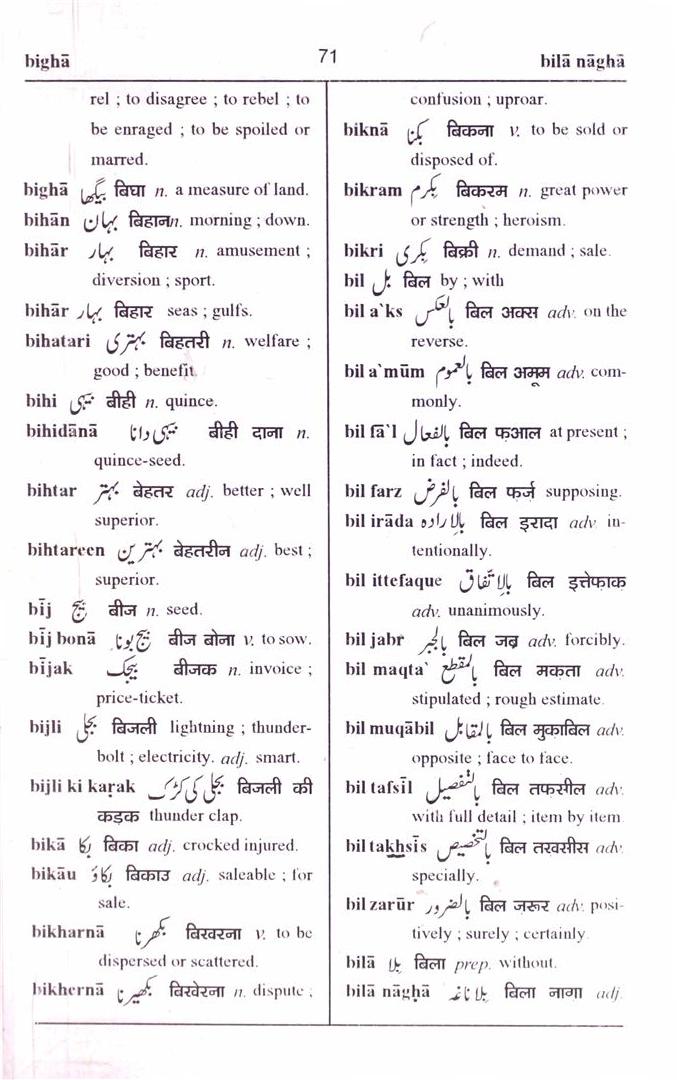 bighā 71 bilā nāghā
rel ; to disagree ; to rebel ; to
be enraged ; to be spoiled or
marred.
bighā بیگھا बिघा n. a measure of land.
bihān بہان बिहान n. morning ; down.
bihār بہار बिहार n. amusement ;
diversion ; sport.
bihār بہار बिहार seas ; gulfs.
bihatari بہتری बिहतरी n. welfare ;
good ; benefit.
bihi بیہی बीही n. quince.
bihidānā بیہی دانا बीही दाना n.
quince-seed.
bihtar بہتر बेहतर adj. better ; well
superior.
bihtareen بہترین बेहतरीन adj. best ;
superior.
bīj بیج बीज n. seed.
bīj bonā بیج بونا बीज बोना v. to sow.
bījak بیجک बीजक n. invoice ;
price-ticket.
bijli بجلی बिजली lightning ; thunder-
bolt ; electricity. adj. smart.
bijli ki kaṛak بجلی کی کڑک बिजली की
कड़क thunder clap.
bikā بکا बिका adj. crocked injured.
bikāu بکاؤ बिकाउ adj. saleable ; for
sale.
bikharnā بکھرنا बिखरना v. to be
dispersed or scattered.
bikhernā بکھیرنا बिखेरना n. dispute ;
confusion ; uproar.
biknā بکنا बिकना v. to be sold or
disposed of.
bikram بکرم बिकरम n. great power
or strength ; heroism.
bikri بکری बिक्री n. demand ; sale.
bil بل बिल by ; with
bil a`ks بالعکس बिल अक्स adv. on the
reverse.
bil a`mūm بالعموم बिल अमूम adv. com-
monly.
bil fā`l بالفعال बिल फ़आल at present ;
in fact ; indeed.
bil farz بالفرض बिल फर्ज supposing.
bil irāda بالارادہ बिल इरादा adv in-
tentionally.
bil ittefaque بالاتّفاق बिल इत्तेफाक
adv. unanimously.
bil jabr بالجبر बिल जब्र adv. forcibly.
bil maqta` بالمقطع बिल मकता adv.
stipulated ; rough estimate.
bil muqābil بالمقابل बिल मुकाबिल adv.
opposite ; face to face.
bil tafsīl بالتفصیل बिल तफसील adv.
with full detail ; item by item
bil takhsīs بالتخصیص बिल तखसीस adv.
specially.
bil zarūr بالضرور बिल जरूर adv. posi-
tively ; surely ; certainly.
bilā بلا बिला prep. without.
bilā nāghā بلا ناغہ बिला नागा adj.